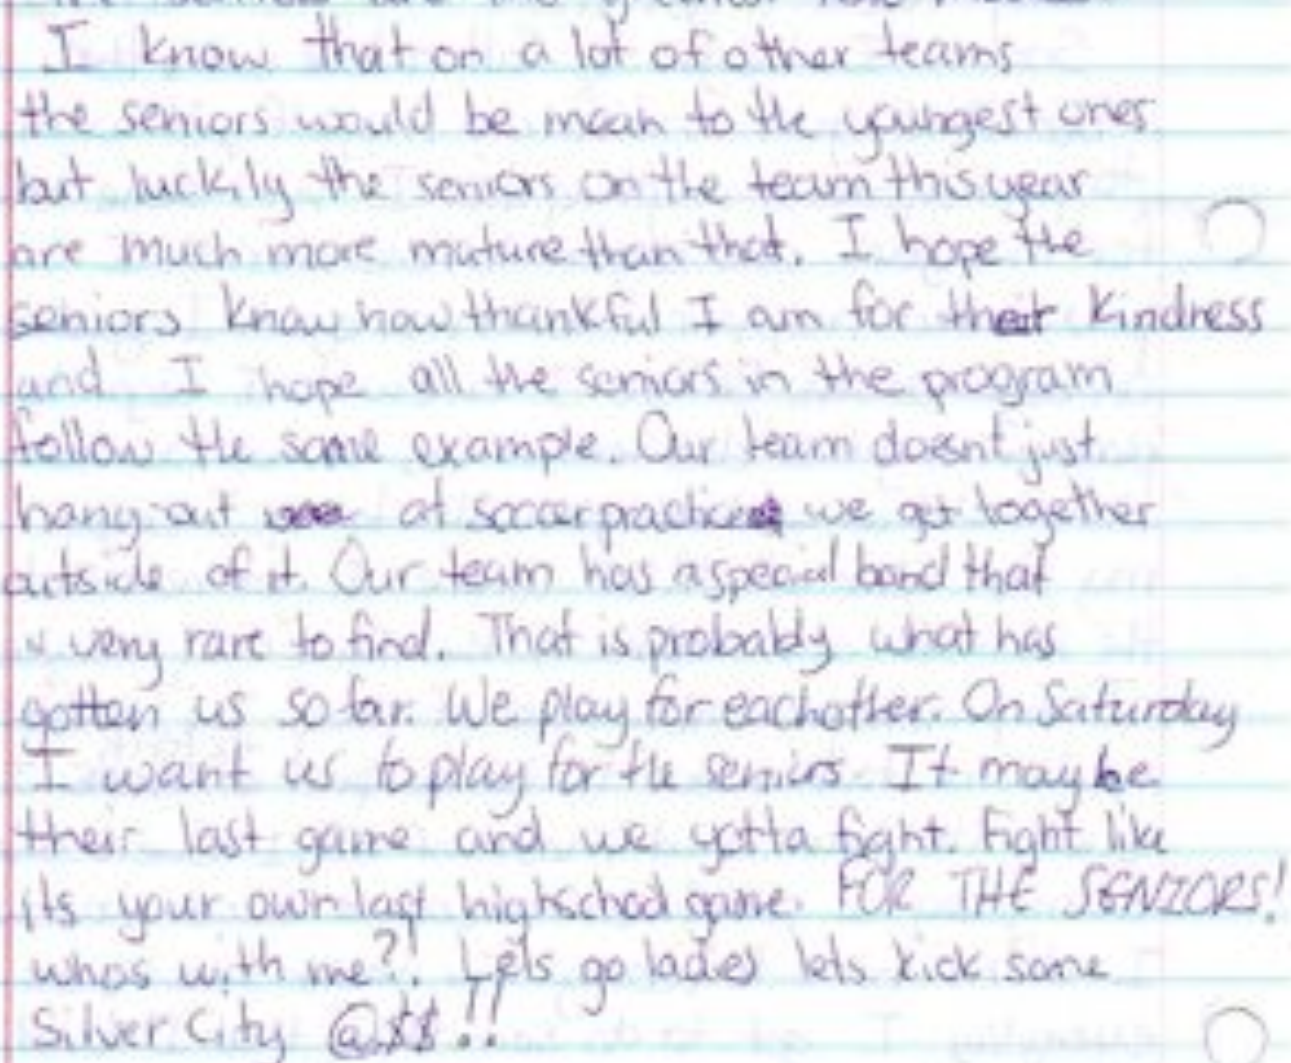 I know that on a lot of other teams
the seniors would be mean to the youngest ones
but luckily the seniors on the team this year
are much more mature than that. I hope the
seniors know how thankful I am for their kindness
and I hope all the seniors in the program
follow the same example. Our team doesnt just
hang out at soccer practice we get together
outside of it. Our team has a special bond that
is very rare to find. That is probably what has
gotten us so far. We play for eachother. On Saturday
I want us to play for the seniors. It may be
their last game and we gotta fight. Fight like
its your own last highschool game. FOR THE SENIORS!
whos with me?! Lets go ladies lets kick some
Silver City @$$!!